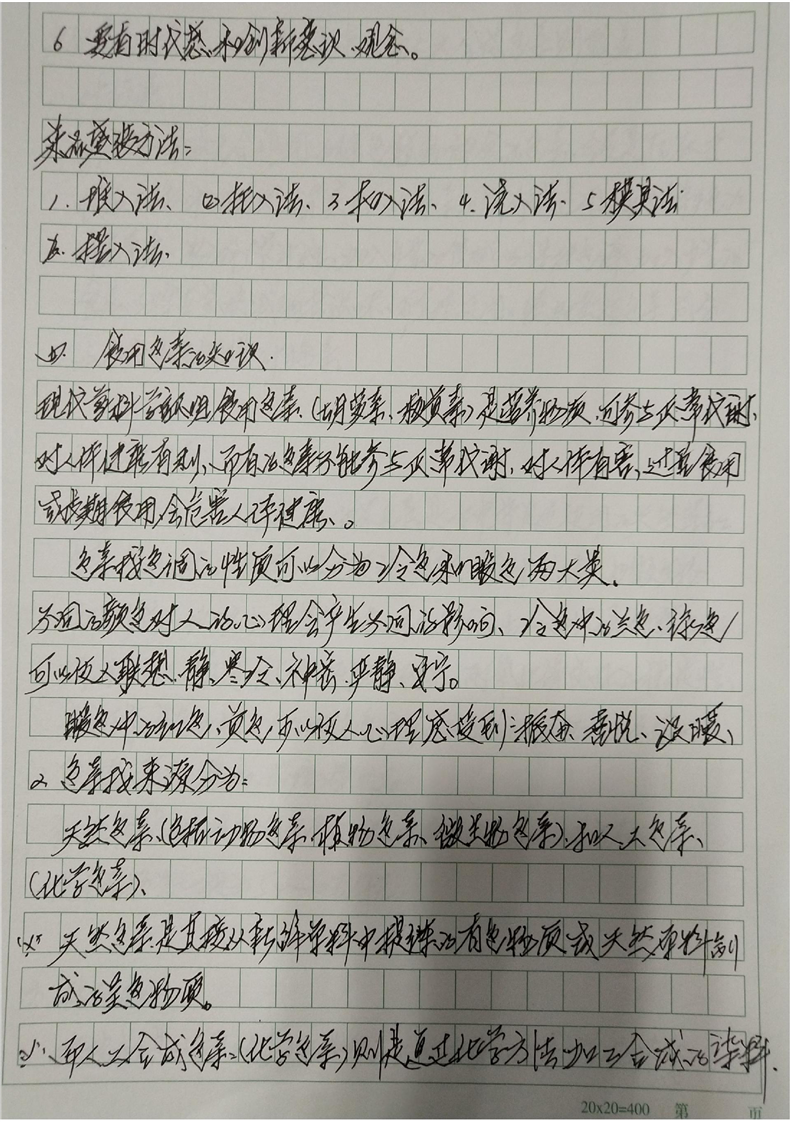 6 要有时代感和创新意识、观念。
菜品盛装方法:
1.堆入法、②托入法、3扣入法、4.流入法、5模具法
6.摆入法、
四.食用色素的知识.
现代 科学 食用色素、(胡萝素、核黄素)是营养物质、可参与正常代谢、
对人体健康有利、而有的色素不能参与正常代谢、对人体有害、过量食用
或长期食用,会危害人体健康、。
色素按色调的性质可以分为冷色和暖色两大类、
不同的颜色对人的心理会产生不同的影响、冷色中的兰色、绿色,
可以使人联想、静、寒冷、神密、严静、安宁。
暖色中的红色,黄色,可以使人心理感受到:振奋、喜悦、温暖、
2 色素按来源分为:
天然色素、(包括动物色素、植物色素、微生物色素)、和人工色素、
(化学色素)、
(1)天然色素是直接从 原料中提炼的有色物质或天然原料制
成的呈色物质。
而人工合成色素、(化学色素)则是通过化学方法加工合成的 料.
20x20=400 第 页